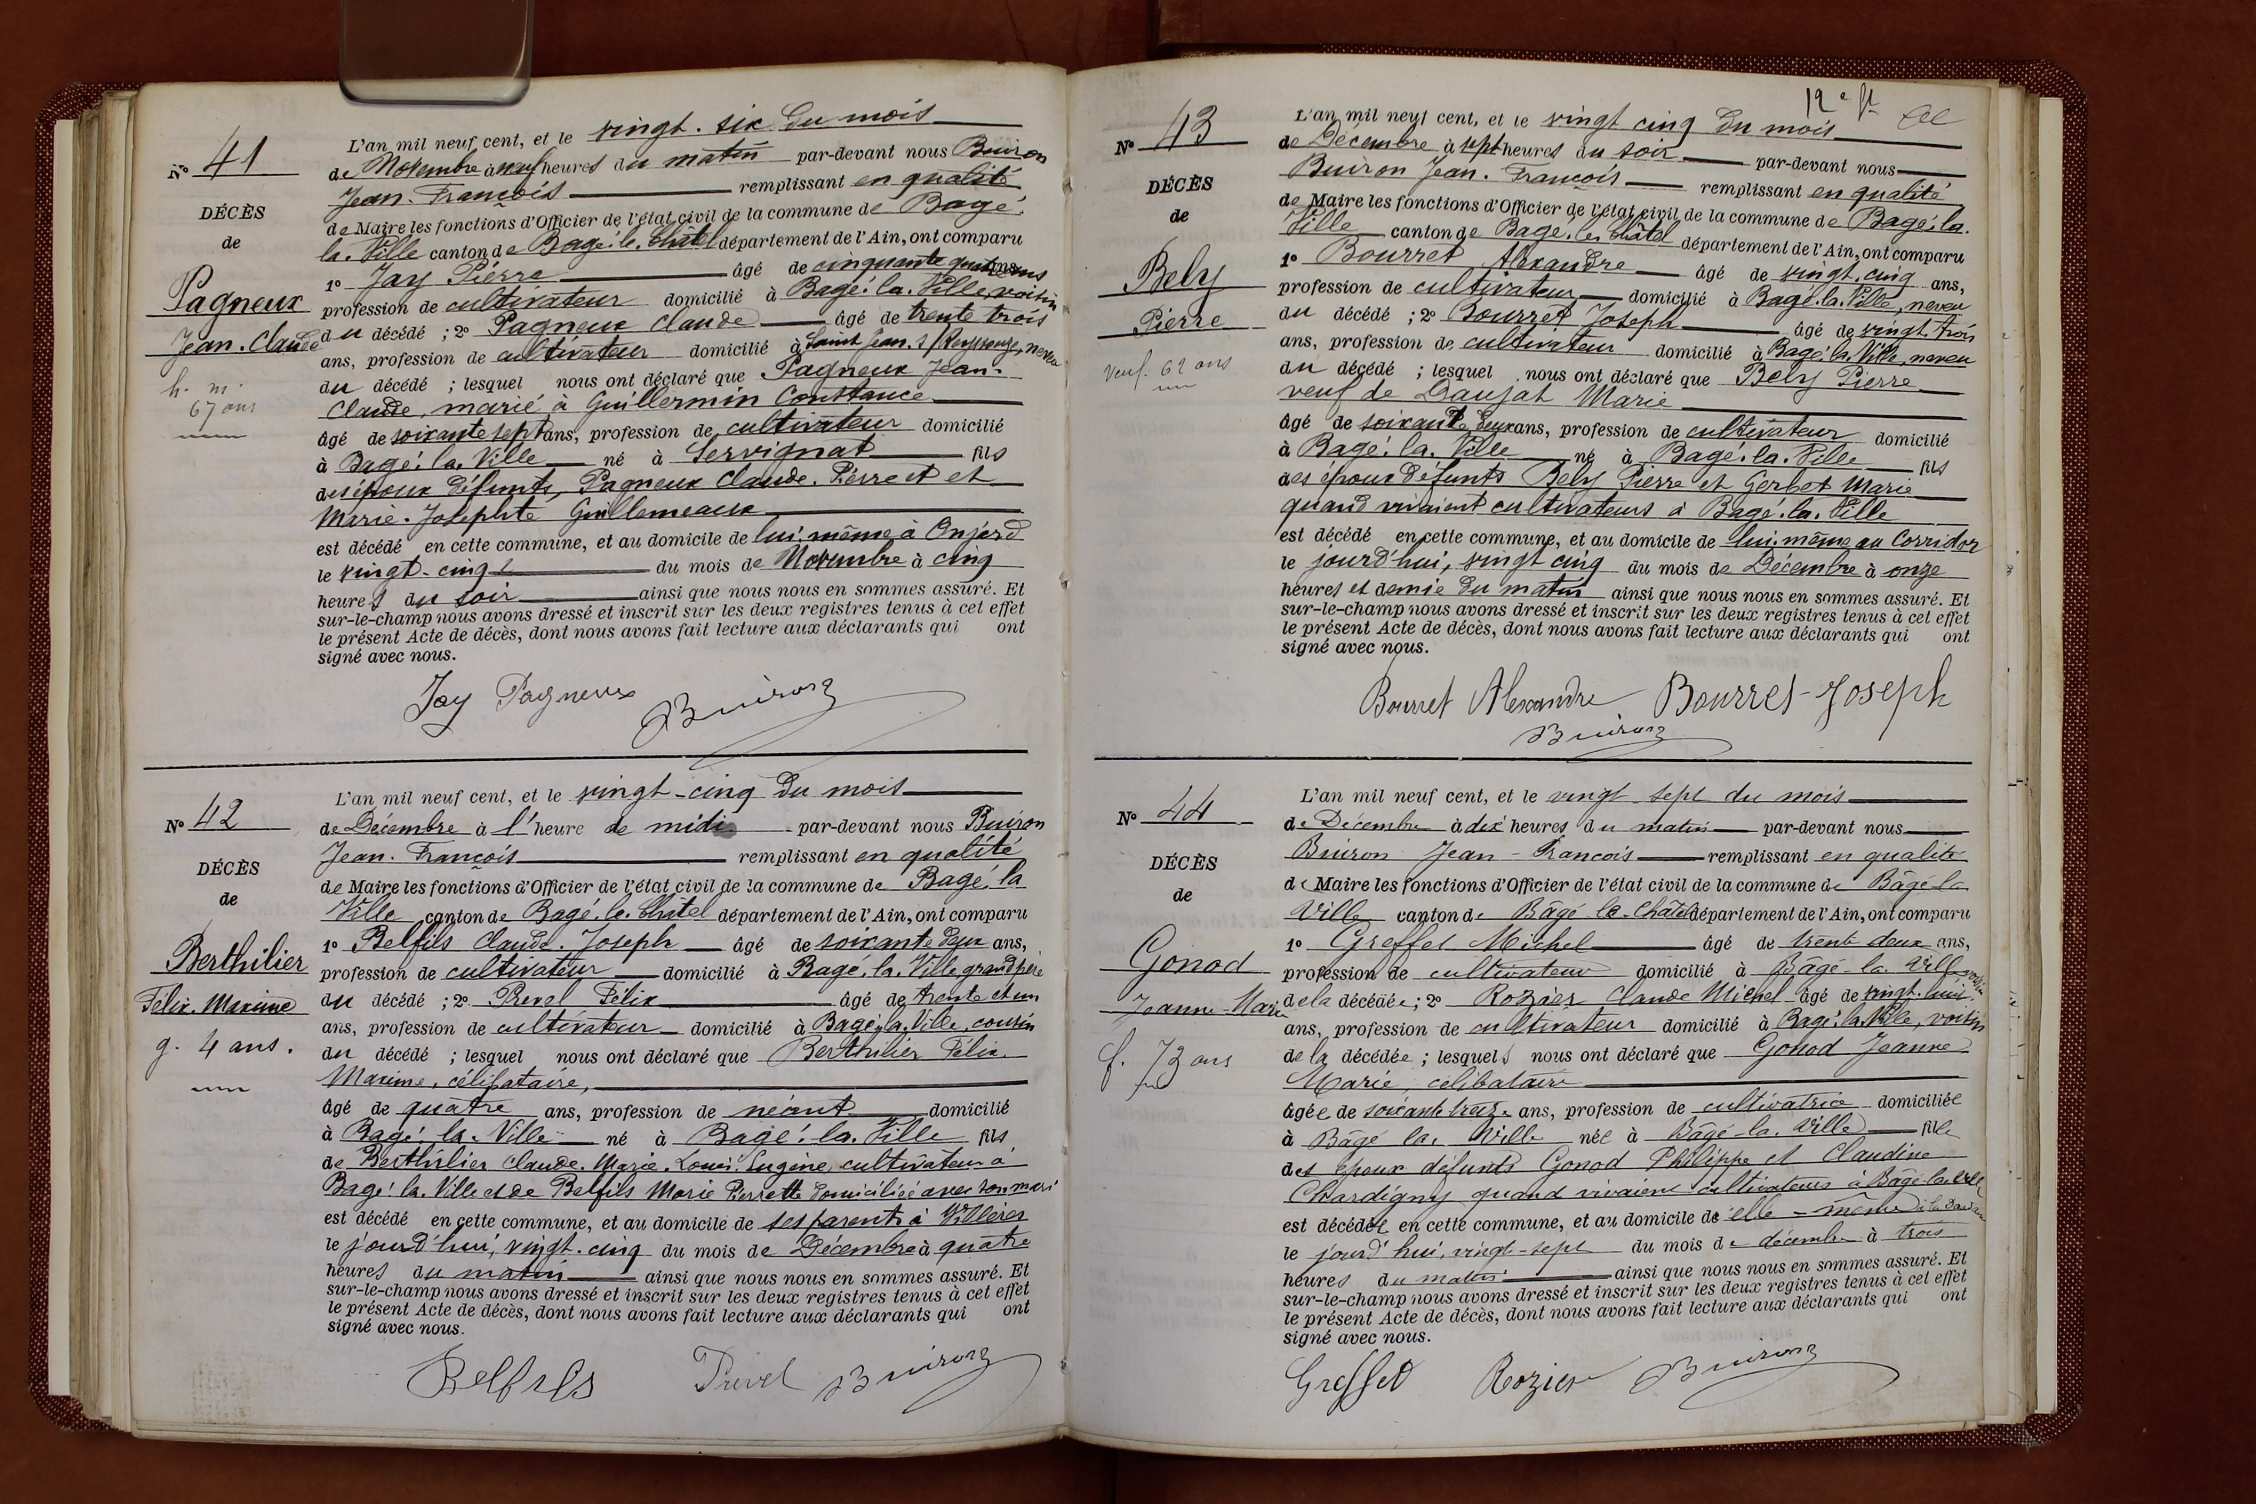 No 41
DÉCÈS
de
Pagneux
Jean-Claude
h. m.
67 ans
L'an mil neuf cent, et le vingt-six du mois
de Novembre à neuf heures du matin par-devant nous Buiron
Jean-François remplissant en qualité
de Maire les fonctions d'Officier de l'état civil de la commune de Bagé-
la-Ville canton de Bagé-le-Châtel département de l'Ain, ont comparu
1o Jay Pierre âgé de cinquante quatre ans
profession de cultivateur domicilié à Bagé-la-Ville, voisin
du décédé ; 2o Pagneux Claude âgé de trente trois
ans, profession de cultivateur domicilié à Saint Jean s/ Reyssouze, neveu
du décédé ; lesquel nous ont déclaré que Pagneux Jean-
Claude, marié à Guillermin Constance
âgé de soixante sept ans, profession de cultivateur domicilié
à Bagé-la-Ville né à Servignat fils
des époux défunts, Pagneux Claude-Pierre et et
Marie-Josephte Guillemeaux
est décédé en cette commune, et au domicile de lui-même à Onjard
le vingt-cinq du mois de Novembre à cinq
heures du soir ainsi que nous nous en sommes assuré. Et
sur-le-champ nous avons dressé et inscrit sur les deux registres tenus à cet effet
le présent Acte de décès, dont nous avons fait lecture aux déclarants qui ont
signé avec nous.
Jay Pagneux Buiron
No 42
DÉCÈS
de
Berthilier
Félix-Maxime
g. 4 ans.
L'an mil neuf cent, et le vingt-cinq du mois
de Décembre à l'heure de midi par-devant nous Buiron
Jean-François remplissant en qualité
de Maire les fonctions d'Officier de l'état civil de la commune de Bagé-la
Ville canton de Bagé-le-Châtel département de l'Ain, ont comparu
1o Belfils Claude-Joseph âgé de soixante deux ans,
profession de cultivateur domicilié à Bagé-la-Ville grand père
du décédé ; 2o Prevel Félix âgé de trente et un
ans, profession de cultivateur domicilié à Bagé-la-Ville, cousin
du décédé ; lesquel nous ont déclaré que Berthilier Félix-
Maxime, célibataire,
âgé de quatre ans, profession de néant domicilié
à Bagé-la-Ville né à Bagé-la-Ville fils
de Berthilier Claude-Marie-Louis-Eugène, cultivateur à
Bagé-la-Ville et de Belfils Marie Pierrette domiciliée avec son mari
est décédé en cette commune, et au domicile de ses parents à Villères
le jourd'hui, vingt-cinq du mois de Décembre à quatre
heures du matin ainsi que nous nous en sommes assuré. Et
sur-le-champ nous avons dressé et inscrit sur les deux registres tenus à cet effet
le présent Acte de décès, dont nous avons fait lecture aux déclarants qui ont
signé avec nous.
Belfils Prevel Buiron
12e ft
No 43
DÉCÈS
de
Bely
Pierre
veuf. 62 ans
L'an mil neuf cent, et le vingt cinq du mois
de Décembre à sept heures du soir par-devant nous
Buiron Jean-François remplissant en qualité
de Maire les fonctions d'Officier de l'état civil de la commune de Bagé-la-
Ville canton de Bagé-le-Châtel département de l'Ain, ont comparu
1o Bourret Alexandre âgé de vingt-cinq ans,
profession de cultivateur domicilié à Bagé-la-Ville, neveu
du décédé ; 2o Bourret Joseph âgé de vingt-trois
ans, profession de cultivateur domicilié à Bagé-la-Ville, neveu
du décédé ; lesquel nous ont déclaré que Bely Pierre
veuf de Daujat Marie
âgé de soixante deux ans, profession de cultivateur domicilié
à Bagé-la-Ville né à Bagé-la-Ville fils
des époux défunts Bely Pierre et Gerbet Marie
quand vivaient cultivateurs à Bagé-la-Ville
est décédé en cette commune, et au domicile de lui-même au Corridor
le jourd'hui, vingt cinq du mois de Décembre à onze
heures et demie du matin ainsi que nous nous en sommes assuré. Et
sur-le-champ nous avons dressé et inscrit sur les deux registres tenus à cet effet
le présent Acte de décès, dont nous avons fait lecture aux déclarants qui ont
signé avec nous.
Bourret Alexandre Bourret-Joseph
Buiron
No 44
DÉCÈS
de
Gonod
Jeanne-Marie
f. 73 ans
L'an mil neuf cent, et le vingt-sept du mois
de Décembre à dix heures du matin par-devant nous
Buiron Jean-François remplissant en qualité
de Maire les fonctions d'Officier de l'état civil de la commune de Bâgé-la
Ville canton de Bâgé-le-Châtel département de l'Ain, ont comparu
1o Greffet Michel âgé de trente deux ans,
profession de cultivateur domicilié à Bâgé-la-Ville voisin
de la décédée ; 2o Rozier Claude Michel âgé de vingt-huit
ans, profession de cultivateur domicilié à Bagé-la-Ville, voisin
de la décédée ; lesquels nous ont déclaré que Gonod Jeanne
Marie, célibataire
âgée de soixante treize ans, profession de cultivatrice domiciliée
à Bâgé-la-Ville née à Bâgé-la-Ville fille
des époux défunts Gonod Philippe et Claudine
Chardigny quand vivaient cultivateurs à Bâgé-la-Ville
est décédée en cette commune, et au domicile de elle-même
le jourd'hui, vingt-sept du mois de décembre à trois
heures du matin ainsi que nous nous en sommes assuré. Et
sur-le-champ nous avons dressé et inscrit sur les deux registres tenus à cet effet
le présent Acte de décès, dont nous avons fait lecture aux déclarants qui ont
signé avec nous.
Greffet Rozier Buiron